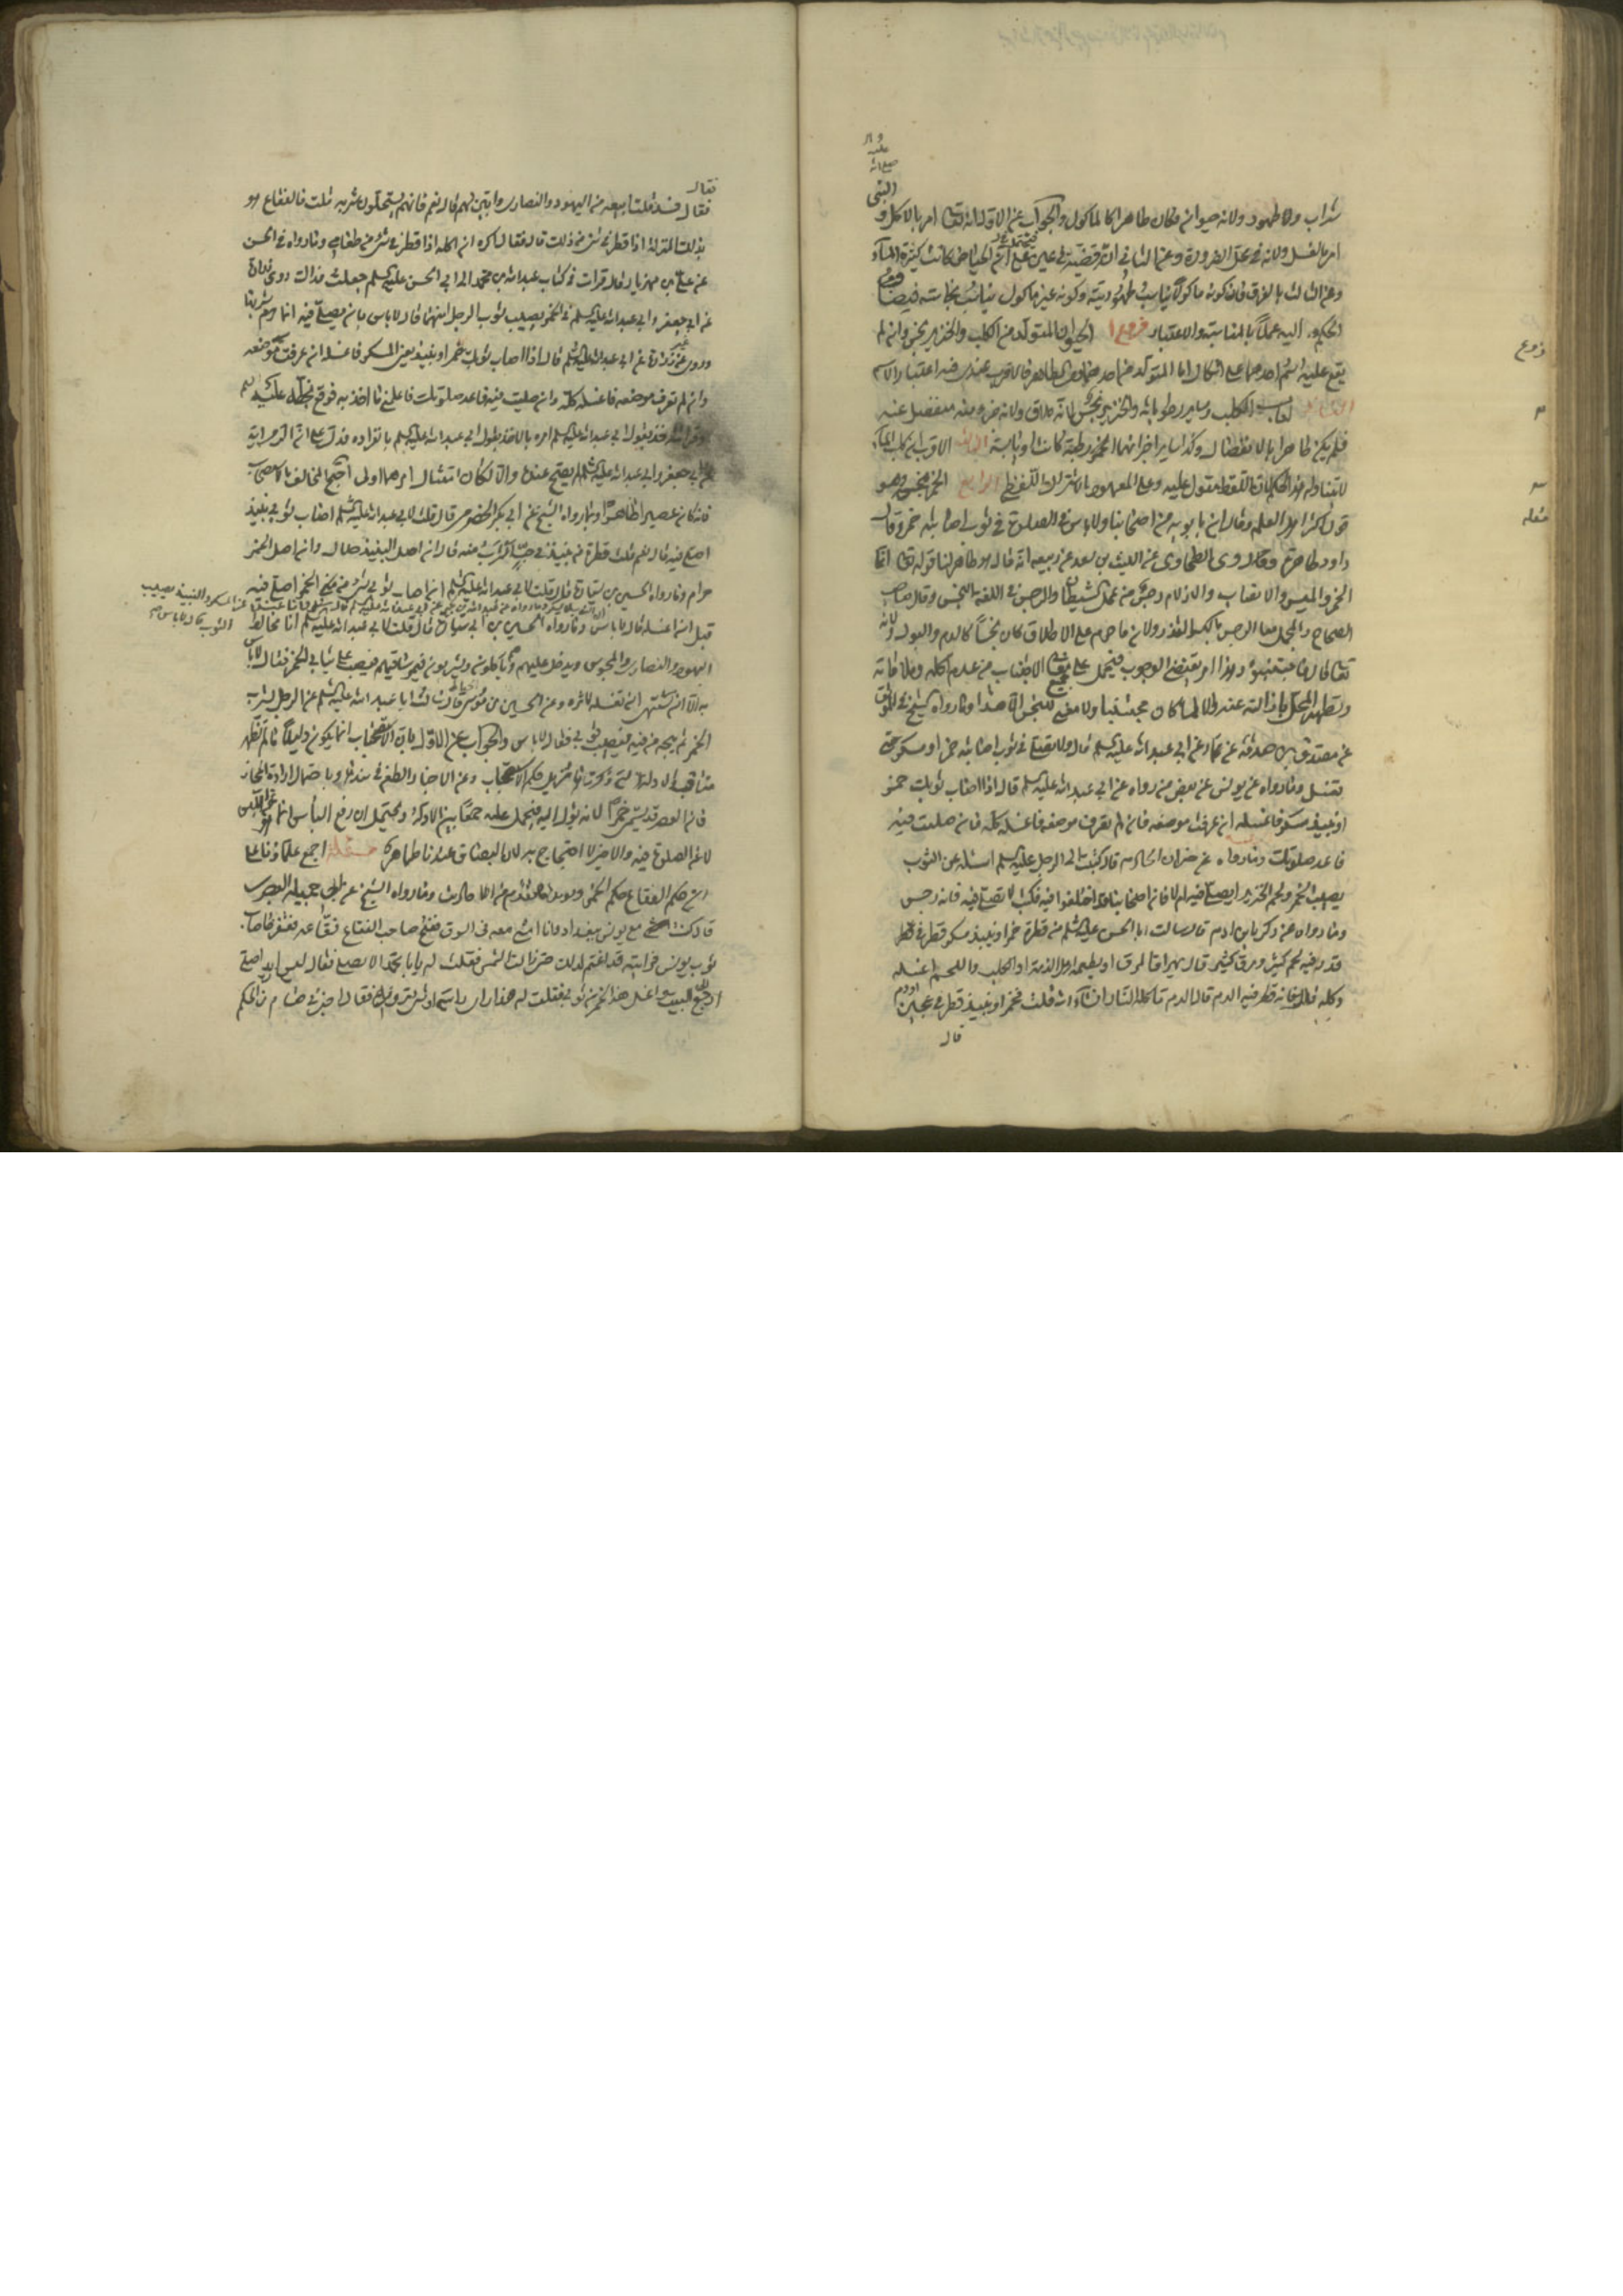 شراب ولا طهور ولانه حيوان فكان طاهرا كالماكول والجواب عن الاول انه تعالى امر بالاكل و النبي
امر بالغسل ولانه في محل الضرورة وعن الثاني انه قضية في عين فيحتمل ان تلك الحياض كانت كثيرة الماء
وعن الثالث بالفرق فان كونه ماكولا يناسب طهوريته وكونه غير ماكول يناسب نجاسته فيضاف
الحكم اليه عملا بالمناسبة والاعتبار فروع ا الحيوان المتولد من الكلب والخنزير نجس وان لم
يقع عليه اسم احدهما على اشكال اما المتولد من احدهما ومن الطاهر فالاقرب عندي فيه اعتبار الاسم
الثاني لعاب الكلب وساير رطوباته والخنزير نجس لانه ملاق ولانه جزء منه منفصل عنه
فلم يكن طاهرا بالانفصال وكذا ساير اجزائهما رطبة كانت او يابسة الثالث الاقرب ان كلب الماء
لا يتناوله هذا الحكم لان اللفظ مقول عليه وعلى المعهود بالاشتراك اللفظي الرابع الخمر نجس وهو
قول اكثر اهل العلم وقال ابن بابويه من اصحابنا ولا باس في الصلوة في ثوب اصابته خمر وقال
داود طاهرة وكذا روى الطحاوي عن الليث بن سعد عن ربيعه انه قال هو طاهر لنا قوله تعالى انما
الخمر والميسر والانصاب والازلام رجس من عمل الشيطان والرجس في اللغة النجس وقال صاحب
الصحاح والمجمل معا الرجس بالكسر القذر ولان ما حرم على الاطلاق كان نجسا كالدم والبول ولانه
تعالى قال فاجتنبوه وهذا امر يقتضي الوجوب فيحمل على جميع الاجتناب من عدم اكله وملاقاته
وتطهير المحل بازالته عنه والا لما كان مجتنبا ولا معنى للنجس الا هذا وما رواه الشيخ في الموثق
عن مصدق بن صدقة عن عمار عن ابي عبد الله عليه السلم قال ولا تصل في ثوب اصابته خمر او مسكر حتى
تغسل وما رواه عن يونس عن بعض من رواه عن ابي عبد الله عليه السلم قال اذا اصاب ثوبك خمر
او نبيذ مسكر فاغسله ان عرفت موضعه فان لم تعرف موضعه فاغسله كله فان صليت فيه
فاعد صلوتك وما رواه عن خيران الخادم قال كتبت الى الرجل عليه السلم اسئله عن الثوب
يصيبه الخمر ولحم الخنزير ايصلى فيه ام لا فان اصحابنا قد اختلفوا فيه فكتب لا تصل فيه فانه رجس
وما رواه عن زكريا بن ادم قال سالت ابا الحسن عليه السلم عن قطرة خمر او نبيذ مسكر قطرت في
قدر فيه لحم كثير ومرق كثير قال يهراق المرق او يطعمه اهل الذمة او الكلب واللحم اغسله
وكله قلت فانه قطر فيه الدم قال الدم تاكله النار ان شاء الله قلت فخمر او نبيذ قطر في عجين او دم
قال
فروع
مسئله
فقال
فقال فسد قلت ابيعه من اليهود والنصارى وابين لهم قال نعم فانهم يستحلون شربه قلت فالفقاع هو
بذلك المنزلة اذا قطر في شئ من ذلك قال فقال اكره ان اكله اذا قطر في شئ من طعامي وما رواه في الحسن
عن علي بن مهزيار قال قرات في كتاب عبد الله بن محمد الى ابي الحسن عليه السلم جعلت فداك روى زرارة
عن ابي جعفر وابي عبد الله عليه السلم في الخمر يصيب ثوب الرجل انهما قالا لا باس بان يصلى فيه انما حرم شربها
وروى غير زرارة عن ابي عبد الله عليه السلم قال اذا اصاب ثوبك خمر او نبيذ يعني المسكر فاغسله ان عرفت موضعه
وان لم تعرف موضعه فاغسله كله وان صليت فيه فاعد صلوتك فاعلمني ما اخذ به فوقع بخطه عليه السلم
وقراته خذ بقول ابي عبد الله عليه السلم امره بالاخذ بقول ابي عبد الله عليه السلم بانفراده فدل على ان الرواية
عن ابي جعفر وابي عبد الله عليه السلم لم يصح عنده والا لكان امتثال امرهما اولى احتج المخالف بالاستصحاب
فانه كان عصيرا طاهرا وبما رواه الشيخ عن ابي بكر الحضرمي قال قلت لابي عبد الله عليه السلم اصاب ثوبي نبيذ
اصلي فيه قال نعم قلت قطرة من نبيذ في حب اشرب منه قال نعم ان اصل النبيذ حلال وان اصل الخمر
حرام وما رواه الحسين بن ابي سارة قال قلت لابي عبد الله عليه السلم ان اصاب ثوبي شئ من الخمر اصلي فيه
قبل ان اغسله قال لا باس وما رواه الحسين بن ابي سارة قال قلت لابي عبد الله عليه السلم انا نخالط
عن المسكر والنبيذ يصيب
الثوب قال لا باس
اليهود والنصارى والمجوس وندخل عليهم وهم ياكلون ويشربون فيمر ساقيهم فيصب على ثيابي الخمر فقال لا باس
به الا ان تشتهي ان تغسله لاثره وعن الحسين بن موسى الحناط قال سالت ابا عبد الله عليه السلم عن الرجل يشرب
الخمر ثم يمجه من فيه فيصيب ثوبي فقال لا باس والجواب عن الاول بان الاستصحاب انما يكون دليلا ما لم تظهر
فان الخمر قد يسمى خمرا لانه يؤل اليه فيحمل عليه جمعا بين الادلة ويحتمل ان رفع الباس انما هو عن اللبس
لا عن الصلوة فيه والاخير لا احتجاج به لان البصاق عندنا طاهر مسئلة اجمع علماؤنا على
ان حكم الفقاع حكم الخمر وما رواه الشيخ عن ابي جميله البصري
قال كنت مع يونس ببغداد وانا امشي معه في السوق ففتح صاحب الفقاع فقاعه فقفز فاصاب
ثوب يونس فرايته قد اغتم لذلك حتى زالت الشمس فقلت له يا ابا محمد الا تصلي فقال ليس اريد اصلي
ارجع الى البيت فاغسل هذا الخمر من ثوبي فقلت له هذا راى رايته او شئ ترويه فقال اخبرني هشام بن الحكم